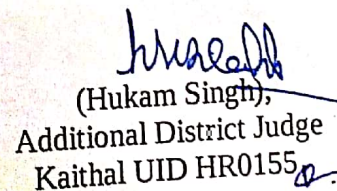 (Hukam Singh),
Additional District Judge
Kaithal UID HR0155